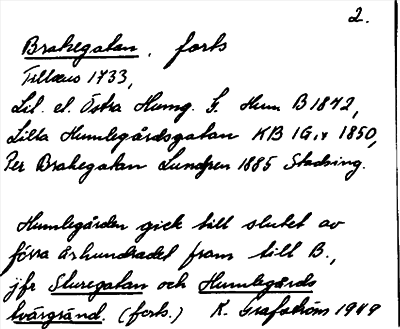 2.
Brahegatan, forts
Tillæus 1733,
Lil. el. Östra Humg. G. Hum B 1842,
Lilla Humlegårdsgatan KB IG:r 1850,
Per Brahegatan Lundgren 1885 Stadsing.
Humlegården gick till slutet av
förra århundradet fram till B.,
jfr Sturegatan och Humlegårds
tvärgränd. (forts.) K. Grafström 1949